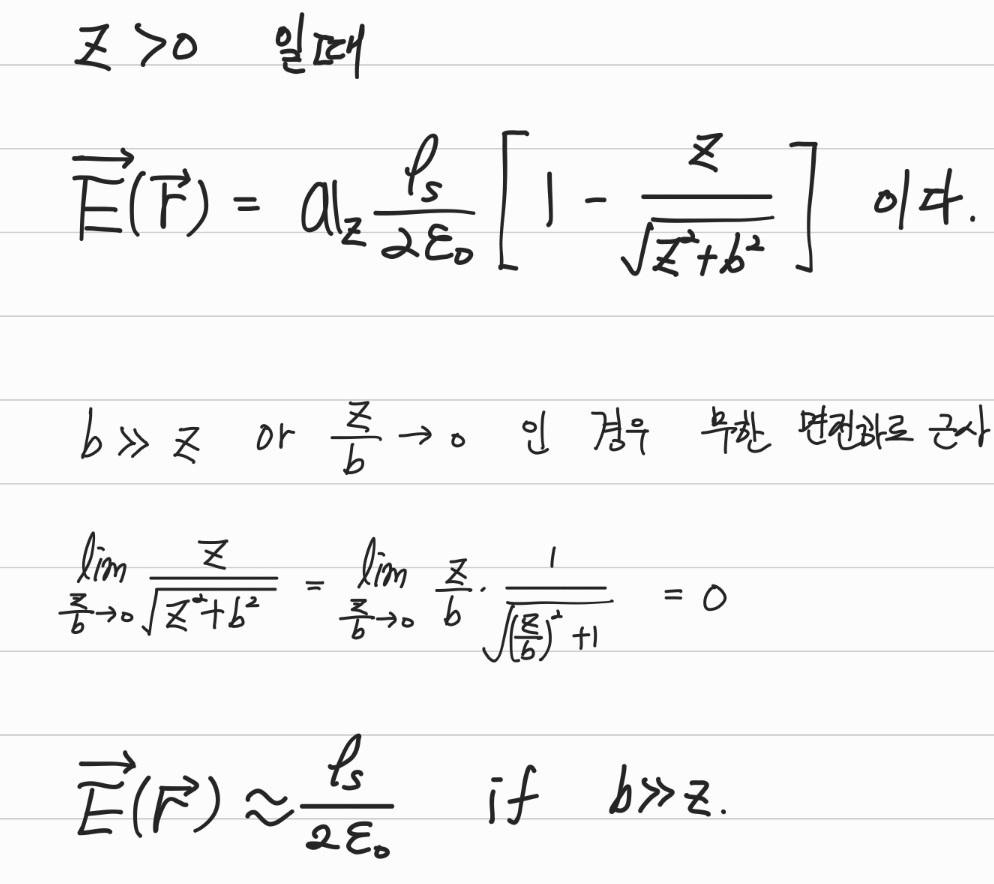 z > 0 일때
$\vec{E}(\vec{r}) = \mathbf{a}_z \frac{\rho_s}{2\varepsilon_0} \left[ 1 - \frac{z}{\sqrt{z^2+b^2}} \right]$ 이다.
b ≫ z or $\frac{z}{b} \to 0$ 인 경우 무한 면전하로 근사
$\lim_{\frac{z}{b} \to 0} \frac{z}{\sqrt{z^2+b^2}} = \lim_{\frac{z}{b} \to 0} \frac{z}{b} \cdot \frac{1}{\sqrt{\left(\frac{z}{b}\right)^2+1}} = 0$
$\vec{E}(\vec{r}) \approx \frac{\rho_s}{2\varepsilon_0}$ if b ≫ z.